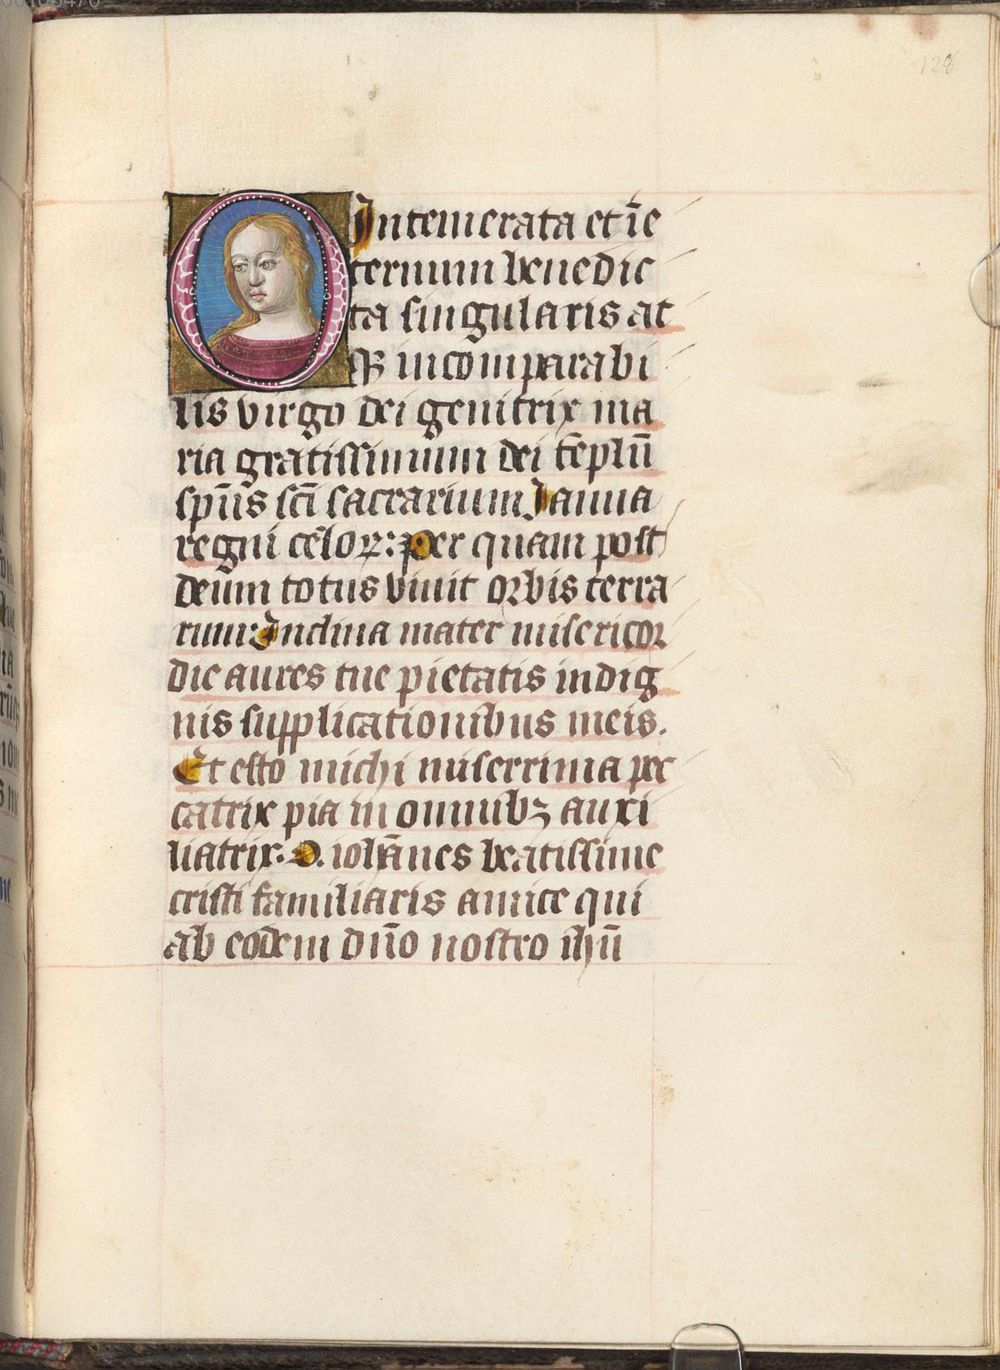 128
O Intemerata et ī e
ternum benedic
ta singularis at
qꝫ incomparabi
lis virgo dei genitrix ma
ria gratissimum dei tēplū
spūs scī sacrarium Ianua
regni celoꝝ: per quam post
deum totus viuit orbis terra
rum: Inclina mater misericor
die aures tue pietatis indig
nis supplicationibus meis.
Et esto michi miserrima pec
catrix pia in omnibꝫ auxi
liatrix. O. ioħānes beatissime
cristi familiaris amice qui
ab eodem dño nostro iħū